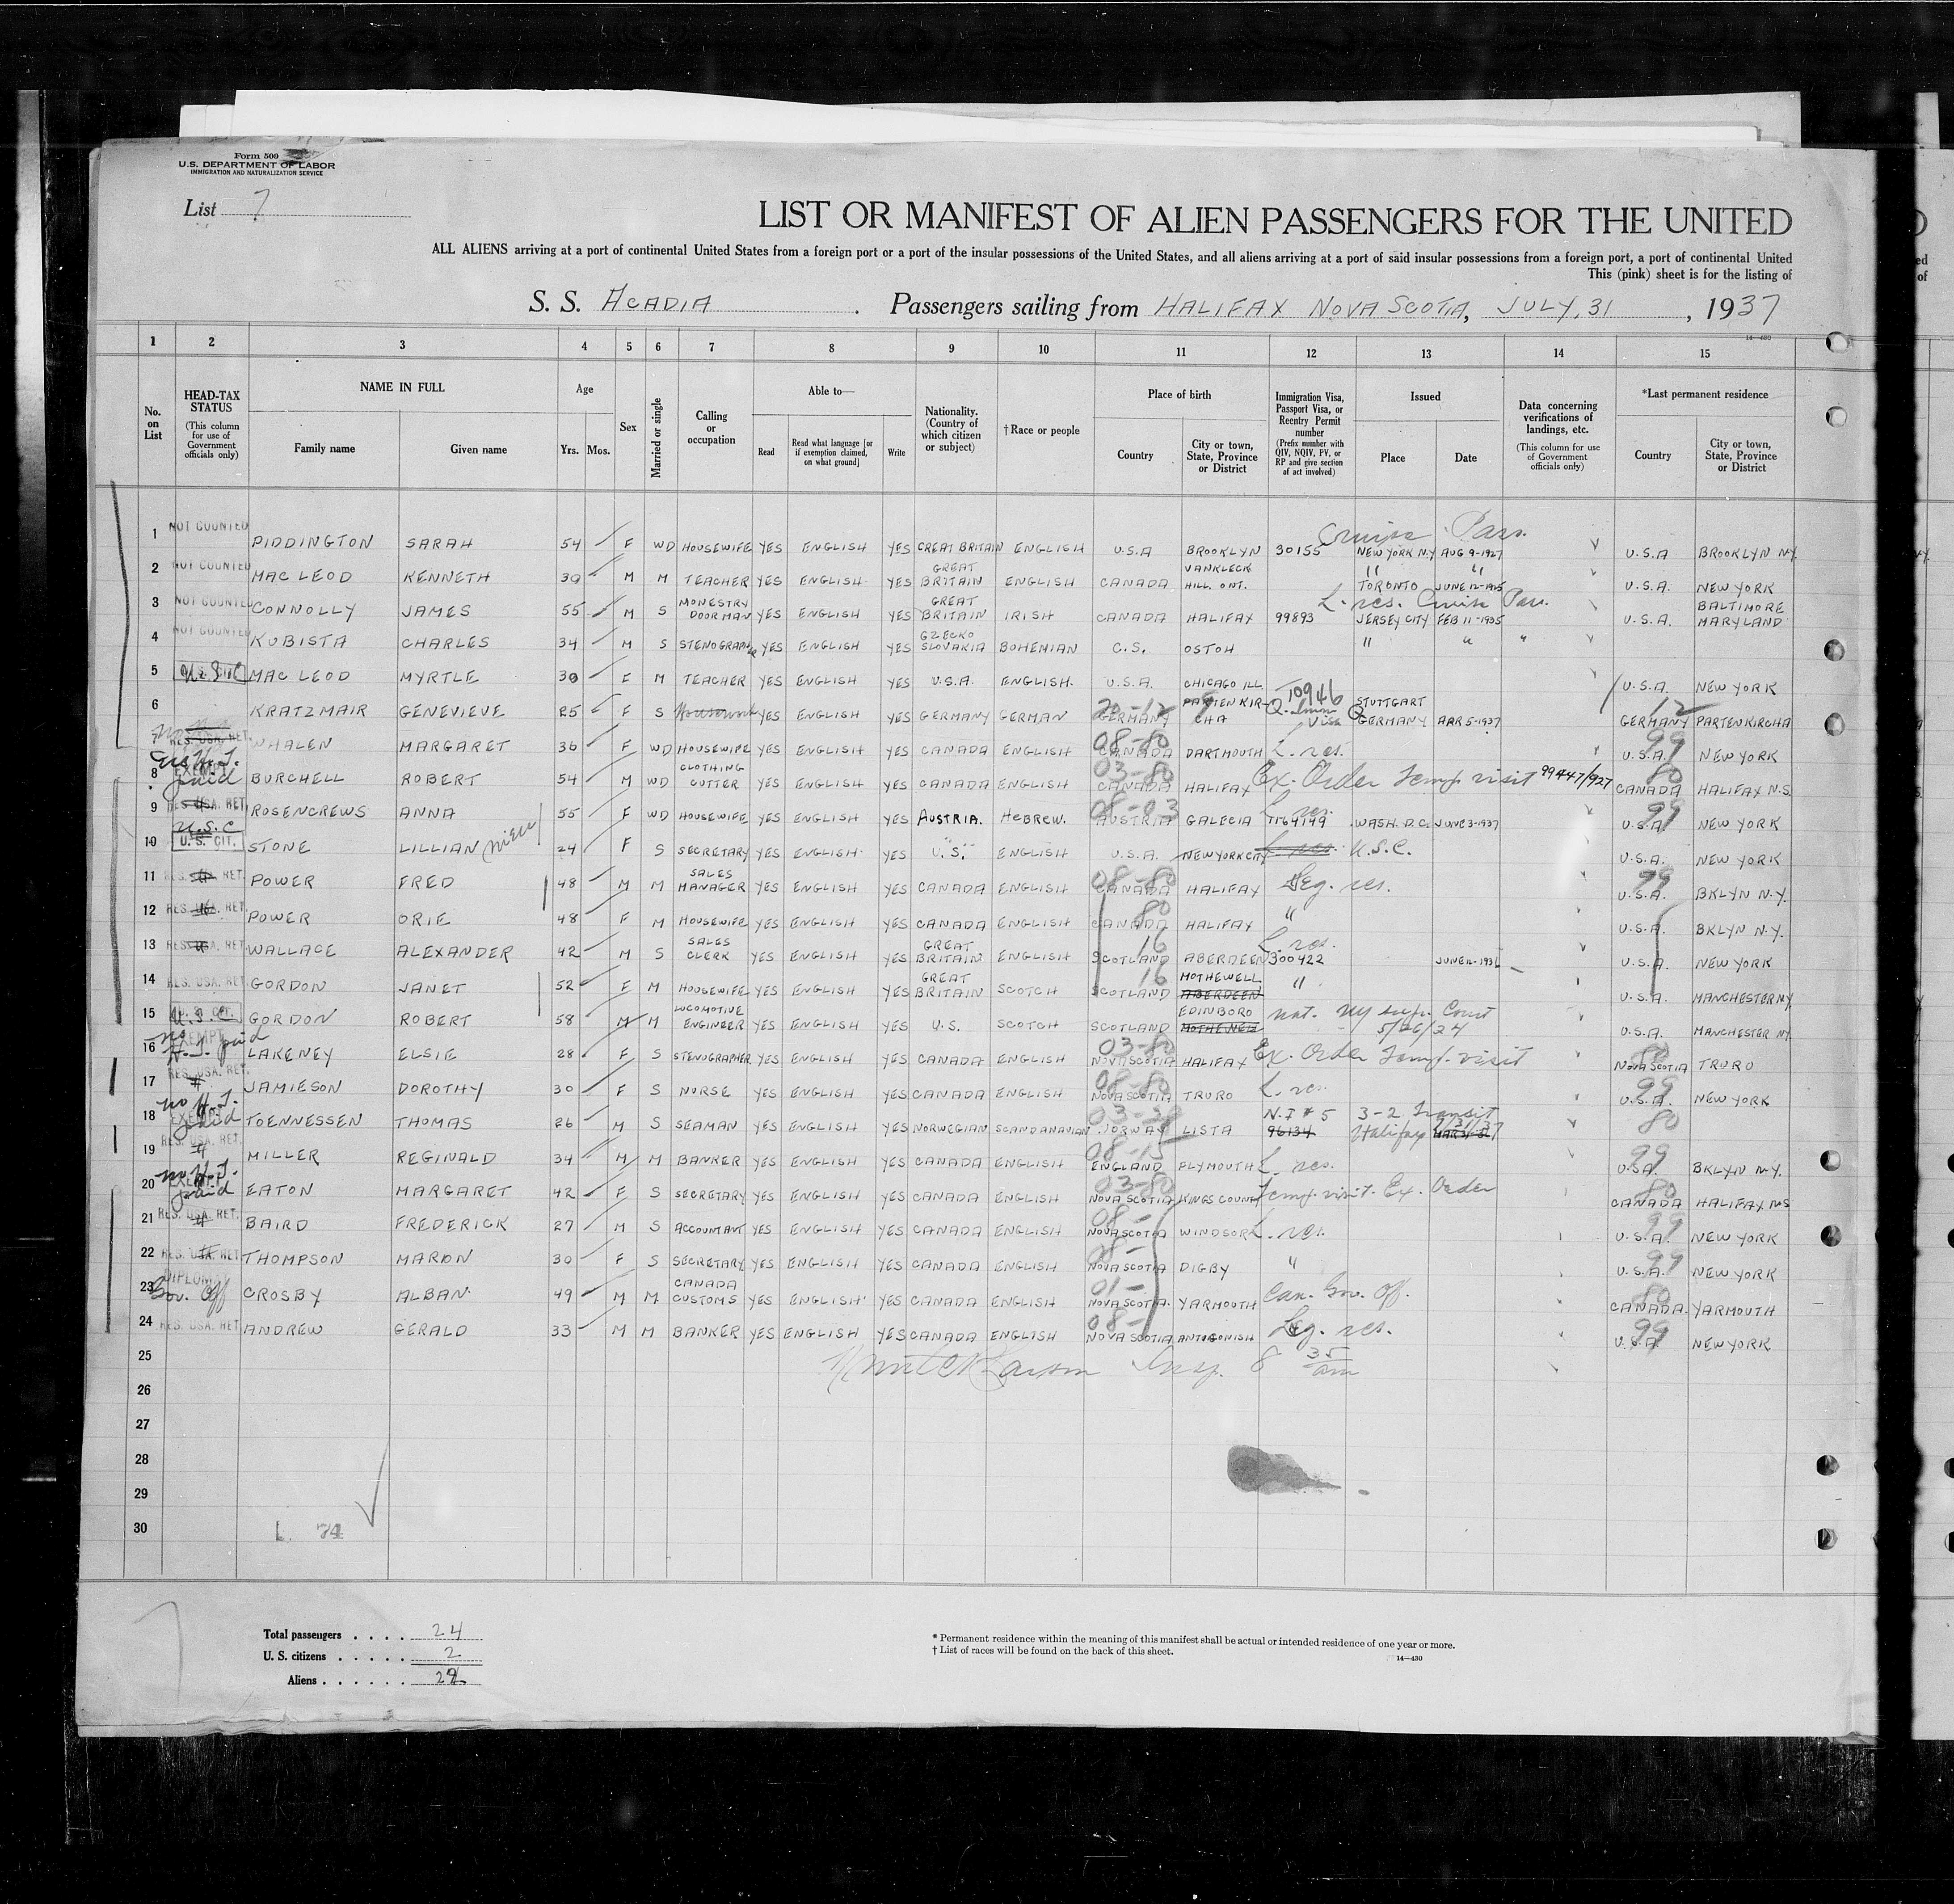 Form 500
U.S. DEPARTMENT OF LABOR
IMMIGRATION AND NATURALIZATION SERVICE
List 7
LIST OR MANIFEST OF ALIEN PASSENGERS FOR THE UNITED
ALL ALIENS arriving at a port of continental United States from a foreign port or a port of the insular possessions of the United States, and all aliens arriving at a port of said insular possessions from a foreign port, a port of continental United
This (pink) sheet is for the listing of
S. S. ACADIA . Passengers sailing from HALIFAX NOVA SCOTIA, JULY, 31 , 1937
14-430
1 2 3 4 5 6 7 8 9 10 11 12 13 14 15
No. on List HEAD-TAX STATUS (This column for use of Government officials only) NAME IN FULL Family name Given name Age Yrs. Mos. Sex Married or single Calling or occupation Able to— Read Read what language [or if exemption claimed, on what ground] Write Nationality. (Country of which citizen or subject) †Race or people Place of birth Country City or town, State, Province or District Immigration Visa, Passport Visa, or Reentry Permit number (Prefix number with QIV, NQIV, PV, or RP and give section of act involved) Issued Place Date Data concerning verifications of landings, etc. (This column for use of Government officials only) *Last permanent residence Country City or town, State, Province or District
Cruise Pass.
1 NOT COUNTED PIDDINGTON SARAH 54 F WD HOUSEWIFE YES ENGLISH YES GREAT BRITAIN ENGLISH U.S.A BROOKLYN 30155 NEW YORK N.Y AUG 9-1927 U.S.A BROOKLYN NY
2 NOT COUNTED MAC LEOD KENNETH 30 M M TEACHER YES ENGLISH YES GREAT BRITAIN ENGLISH CANADA VANKLECK HILL. ONT. " " TORONTO JUNE 12-1925 U.S.A. NEW YORK
L. res. Cruise Pass.
3 NOT COUNTED CONNOLLY JAMES 55 M S MONESTRY DOORMAN YES ENGLISH YES GREAT BRITAIN IRISH CANADA HALIFAX 99893 JERSEY CITY FEB 11-1935 U.S.A. BALTIMORE MARYLAND
4 NOT COUNTED KUBISTA CHARLES 34 M S STENOGRAPHER YES ENGLISH YES CZECKO SLOVAKIA BOHEMIAN C.S. OSTOH " " "
5 U.S.C MAC LEOD MYRTLE 30 F M TEACHER YES ENGLISH YES U.S.A. ENGLISH. U.S.A. CHICAGO ILL U.S.A. NEW YORK
6 KRATZMAIR GENEVIEVE 25 F S Housework YES ENGLISH YES GERMANY GERMAN GERMANY PARTENKIRCHA 10946 Visa STUTTGART GERMANY APR 5-1937 12 GERMANY PARTENKIRCHA
RES. USA. RET. WHALEN MARGARET 36 F WD HOUSEWIFE YES ENGLISH YES CANADA ENGLISH 08-80 CANADA DARTMOUTH L. res. 99 U.S.A. NEW YORK
8 EXEMPT paid BURCHELL ROBERT 54 M WD CLOTHING CUTTER YES ENGLISH YES CANADA ENGLISH 03-80 CANADA HALIFAX Ex. Order Temp. visit 99447/927 80 CANADA HALIFAX N.S.
9 RES. USA. RET. ROSENCREWS ANNA 55 F WD HOUSEWIFE YES ENGLISH YES AUSTRIA. HEBREW. 08-03 AUSTRIA GALECIA L. res. 1164149 WASH. D.C. JUNE 3-1937 99 U.S.A. NEW YORK
10 U.S.C U.S. CIT. STONE LILLIAN (niece 24 F S SECRETARY YES ENGLISH YES U.S. ENGLISH U.S.A. NEW YORK CITY L. res. U.S.C. U.S.A. NEW YORK
11 RES. RET. POWER FRED 48 M M SALES MANAGER YES ENGLISH YES CANADA ENGLISH 08-80 CANADA HALIFAX Leg. res. 99 U.S.A. BKLYN N.Y.
12 RES. RET. POWER ORIE 48 F M HOUSEWIFE YES ENGLISH YES CANADA ENGLISH 80 CANADA HALIFAX " U.S.A. BKLYN N.Y.
13 RES. USA. RET. WALLACE ALEXANDER 42 M S SALES CLERK YES ENGLISH YES GREAT BRITAIN ENGLISH 16 SCOTLAND ABERDEEN L. res. 300422 U.S.A. NEW YORK
14 RES. USA. RET. GORDON JANET 52 F M HOUSEWIFE YES ENGLISH YES GREAT BRITAIN SCOTCH 16 SCOTLAND MOTHEWELL ABERDEEN " U.S.A. MANCHESTER NY
15 U.S.C GORDON ROBERT 58 M M LOCOMOTIVE ENGINEER YES ENGLISH YES U.S. SCOTCH SCOTLAND EDINBORO MOTHEWELL nat. NY sup. Court 5/26/24 U.S.A. MANCHESTER NY.
16 no H.T. paid EXEMPT LAKENEY ELSIE 28 F S STENOGRAPHER YES ENGLISH YES CANADA ENGLISH 03-80 NOVA SCOTIA HALIFAX Ex. Order Temp. visit 80 NOVA SCOTIA TRURO
17 RES. USA. RET. JAMIESON DOROTHY 30 F S NURSE YES ENGLISH YES CANADA ENGLISH 08-80 NOVA SCOTIA TRURO L. res. 99 U.S.A. NEW YORK
18 no H.T. paid TOENNESSEN THOMAS 26 M S SEAMAN YES ENGLISH YES NORWEGIAN SCANDANAVIAN NORWAY LISTA N.I # 5 96134 3-2 Transit Halifax 7/31/37 80
19 RES. USA. RET. MILLER REGINALD 34 M M BANKER YES ENGLISH YES CANADA ENGLISH 08-15 ENGLAND PLYMOUTH L. res. 99 U.S.A. BKLYN N.Y.
20 no H.T. paid EATON MARGARET 42 F S SECRETARY YES ENGLISH YES CANADA ENGLISH 03-80 NOVA SCOTIA KINGS COUNTY Temp. visit. Ex. Order 80 CANADA HALIFAX NS
21 RES. USA. RET. BAIRD FREDERICK 27 M S ACCOUNTANT YES ENGLISH YES CANADA ENGLISH 08- NOVA SCOTIA WINDSOR L. res. 99 U.S.A. NEW YORK
22 RES. USA. RET. THOMPSON MARION 30 F S SECRETARY YES ENGLISH YES CANADA ENGLISH 08- NOVA SCOTIA DIGBY " 99 U.S.A. NEW YORK
23 DIPLOMAT Gov. Off CROSBY ALBAN 49 M M CANADA CUSTOMS YES ENGLISH YES CANADA ENGLISH 01- NOVA SCOTIA. YARMOUTH Can. Gov. Off. 80 CANADA. YARMOUTH
24 RES. USA. RET. ANDREW GERALD 33 M M BANKER YES ENGLISH YES CANADA ENGLISH 08- NOVA SCOTIA ANTIGONISH Leg. res. 99 U.S.A. NEW YORK
25 Insp. 8 35 am
26
27
28
29
30 L. 74
Total passengers . . . . 24
U. S. citizens . . . . . 2
Aliens . . . . . .
* Permanent residence within the meaning of this manifest shall be actual or intended residence of one year or more.
† List of races will be found on the back of this sheet.
14—430